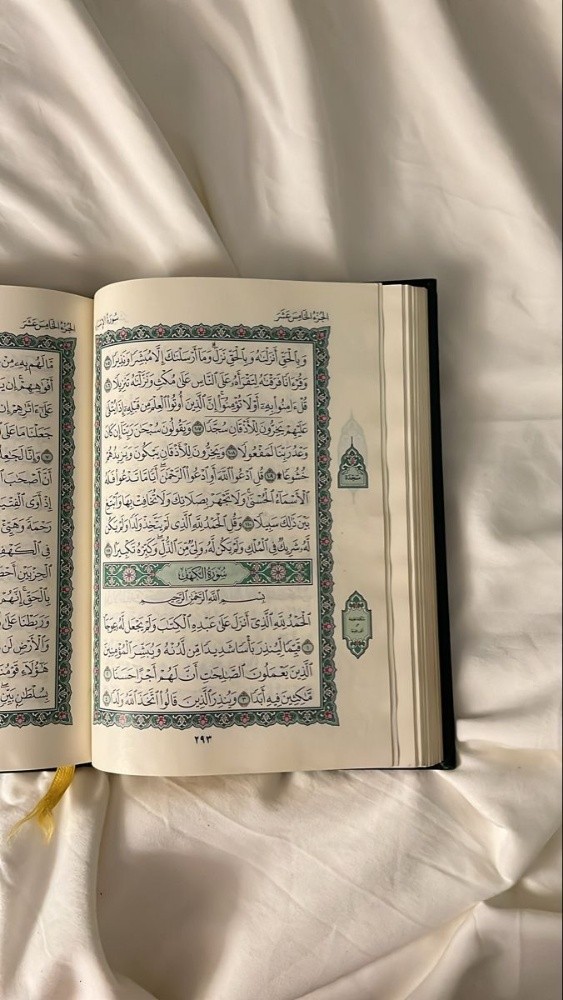 الجزء الخامس عشر
سورة الإس
وَبِٱلْحَقِّ أَنزَلْنَٰهُ وَبِٱلْحَقِّ نَزَلَ وَمَآ أَرْسَلْنَٰكَ إِلَّا مُبَشِّرًا وَنَذِيرًا ١٠٥
وَقُرْءَانًا فَرَقْنَٰهُ لِتَقْرَأَهُۥ عَلَى ٱلنَّاسِ عَلَىٰ مُكْثٍ وَنَزَّلْنَٰهُ تَنزِيلًا ١٠٦
قُلْ ءَامِنُوا۟ بِهِۦٓ أَوْ لَا تُؤْمِنُوٓا۟ إِنَّ ٱلَّذِينَ أُوتُوا۟ ٱلْعِلْمَ مِن قَبْلِهِۦٓ إِذَا يُتْلَىٰ
عَلَيْهِمْ يَخِرُّونَ لِلْأَذْقَانِ سُجَّدًا ١٠٧ وَيَقُولُونَ سُبْحَٰنَ رَبِّنَآ إِن كَانَ
وَعْدُ رَبِّنَا لَمَفْعُولًا ١٠٨ وَيَخِرُّونَ لِلْأَذْقَانِ يَبْكُونَ وَيَزِيدُهُمْ
خُشُوعًا ۩ ١٠٩ قُلِ ٱدْعُوا۟ ٱللَّهَ أَوِ ٱدْعُوا۟ ٱلرَّحْمَٰنَ أَيًّا مَّا تَدْعُوا۟ فَلَهُ
ٱلْأَسْمَآءُ ٱلْحُسْنَىٰ وَلَا تَجْهَرْ بِصَلَاتِكَ وَلَا تُخَافِتْ بِهَا وَٱبْتَغِ
بَيْنَ ذَٰلِكَ سَبِيلًا ١١٠ وَقُلِ ٱلْحَمْدُ لِلَّهِ ٱلَّذِى لَمْ يَتَّخِذْ وَلَدًا وَلَمْ يَكُن
لَّهُۥ شَرِيكٌ فِى ٱلْمُلْكِ وَلَمْ يَكُن لَّهُۥ وَلِىٌّ مِّنَ ٱلذُّلِّ وَكَبِّرْهُ تَكْبِيرًۢا ١١١
سُورَةُ الكَهْفِ
بِسْمِ ٱللَّهِ ٱلرَّحْمَٰنِ ٱلرَّحِيمِ
ٱلْحَمْدُ لِلَّهِ ٱلَّذِىٓ أَنزَلَ عَلَىٰ عَبْدِهِ ٱلْكِتَٰبَ وَلَمْ يَجْعَل لَّهُۥ عِوَجَا
١ قَيِّمًا لِّيُنذِرَ بَأْسًا شَدِيدًا مِّن لَّدُنْهُ وَيُبَشِّرَ ٱلْمُؤْمِنِينَ
ٱلَّذِينَ يَعْمَلُونَ ٱلصَّٰلِحَٰتِ أَنَّ لَهُمْ أَجْرًا حَسَنًا ٢
مَّٰكِثِينَ فِيهِ أَبَدًا ٣ وَيُنذِرَ ٱلَّذِينَ قَالُوا۟ ٱتَّخَذَ ٱللَّهُ وَلَدًا ٤
٢٩٣
سجدة
الجزء الخامس عشر
مَّا لَهُم بِهِۦ مِنْ
أَفْوَٰهِهِمْ إِن يَ
عَلَىٰٓ ءَاثَٰرِهِمْ إِن
جَعَلْنَا مَا عَلَى
٧ وَإِنَّا لَجَٰعِلُ
أَنَّ أَصْحَٰبَ
إِذْ أَوَى ٱلْفِتْيَ
رَحْمَةً وَهَيِّئْ
فِى ٱلْكَهْفِ
ٱلْحِزْبَيْنِ أَحْصَ
بِٱلْحَقِّ إِنَّهُمْ
وَرَبَطْنَا عَ
وَٱلْأَرْضِ لَن
هَٰٓؤُلَآءِ قَوْمُنَا
بِسُلْطَٰنٍ بَيِّنٍ